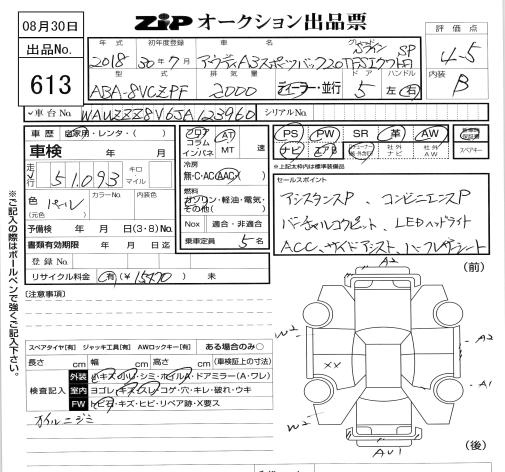 08月30日
ZIP オークション出品票
評価点
4-5
出品No.
613
年式 初年度登録 車名 グレード
2018 30年7月 アウディA3スポーツバック 20TFSIクワトロ Sライン SP
型式 排気量 ドア ハンドル
ABA-8VCZPF 2000 ディーラー・並行 5 左(有)
内装
B
車台No. WAUZZZ8V6JA123960 シリアルNo.
車歴 自家用・レンタ・( )
フロア コラム インパネ AT MT 速
PS PW SR 革 AW
ナビ エアB
社外ナビ 社外AW スペアキー
※上記太枠内は標準装備品
車検 年 月 日
走行 51,093 キロ マイル
冷房
無・C・AC(AAC)
燃料
ガソリン・軽油・電気・その他( )
色 パール (元色) カラーNo. 内装色
予備検 年 月 日(3・8)No.
Nox 適合・非適合
書類有効期限 年 月 日迄
乗車定員 5名
登録No.
リサイクル料金 (有)(¥15470) 未
セールスポイント
アシスタンスP、コンビニエンスP
バーチャルコクピット、LEDヘッドライト
ACC、サイドアシスト、ハーフレザーシート
[注意事項]
スペアタイヤ[有] ジャッキ工具[有] AWロックキー[有] ある場合のみ○
長さ cm 幅 cm 高さ cm (車検証上の寸法)
検査記入
外装 小キズ・小U・シミ・ホイルA・ドアミラー(A・ワレ)
室内 ヨゴレ・キズ・スレ・コゲ・穴・キレ・破れ・ウキ
FW トビ石・キズ・ヒビ・リペア跡・X要ス
オイルニジミ
(前)
A2
W2
A2
XX
A1
W2
AU1
(後)
※ご記入の際はボールペンで強くご記入下さい。